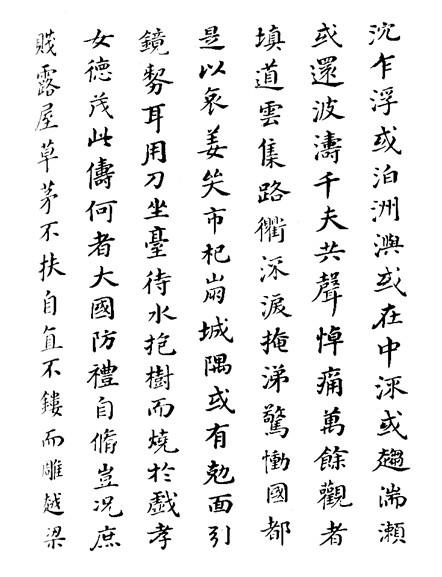 沈乍浮或泊洲嶼或在中流或趨湍瀨
或還波濤千夫共聲悼痛萬餘觀者
填道雲集路衢流淚掩涕驚慟國都
是以哀姜哭市杞崩城隅或有勊面引
鏡剺耳用刀坐臺待水抱樹而燒於戲孝
女德茂此儔何者大國防禮自脩豈況庶
賤露屋草茅不扶自直不鏤而雕越梁